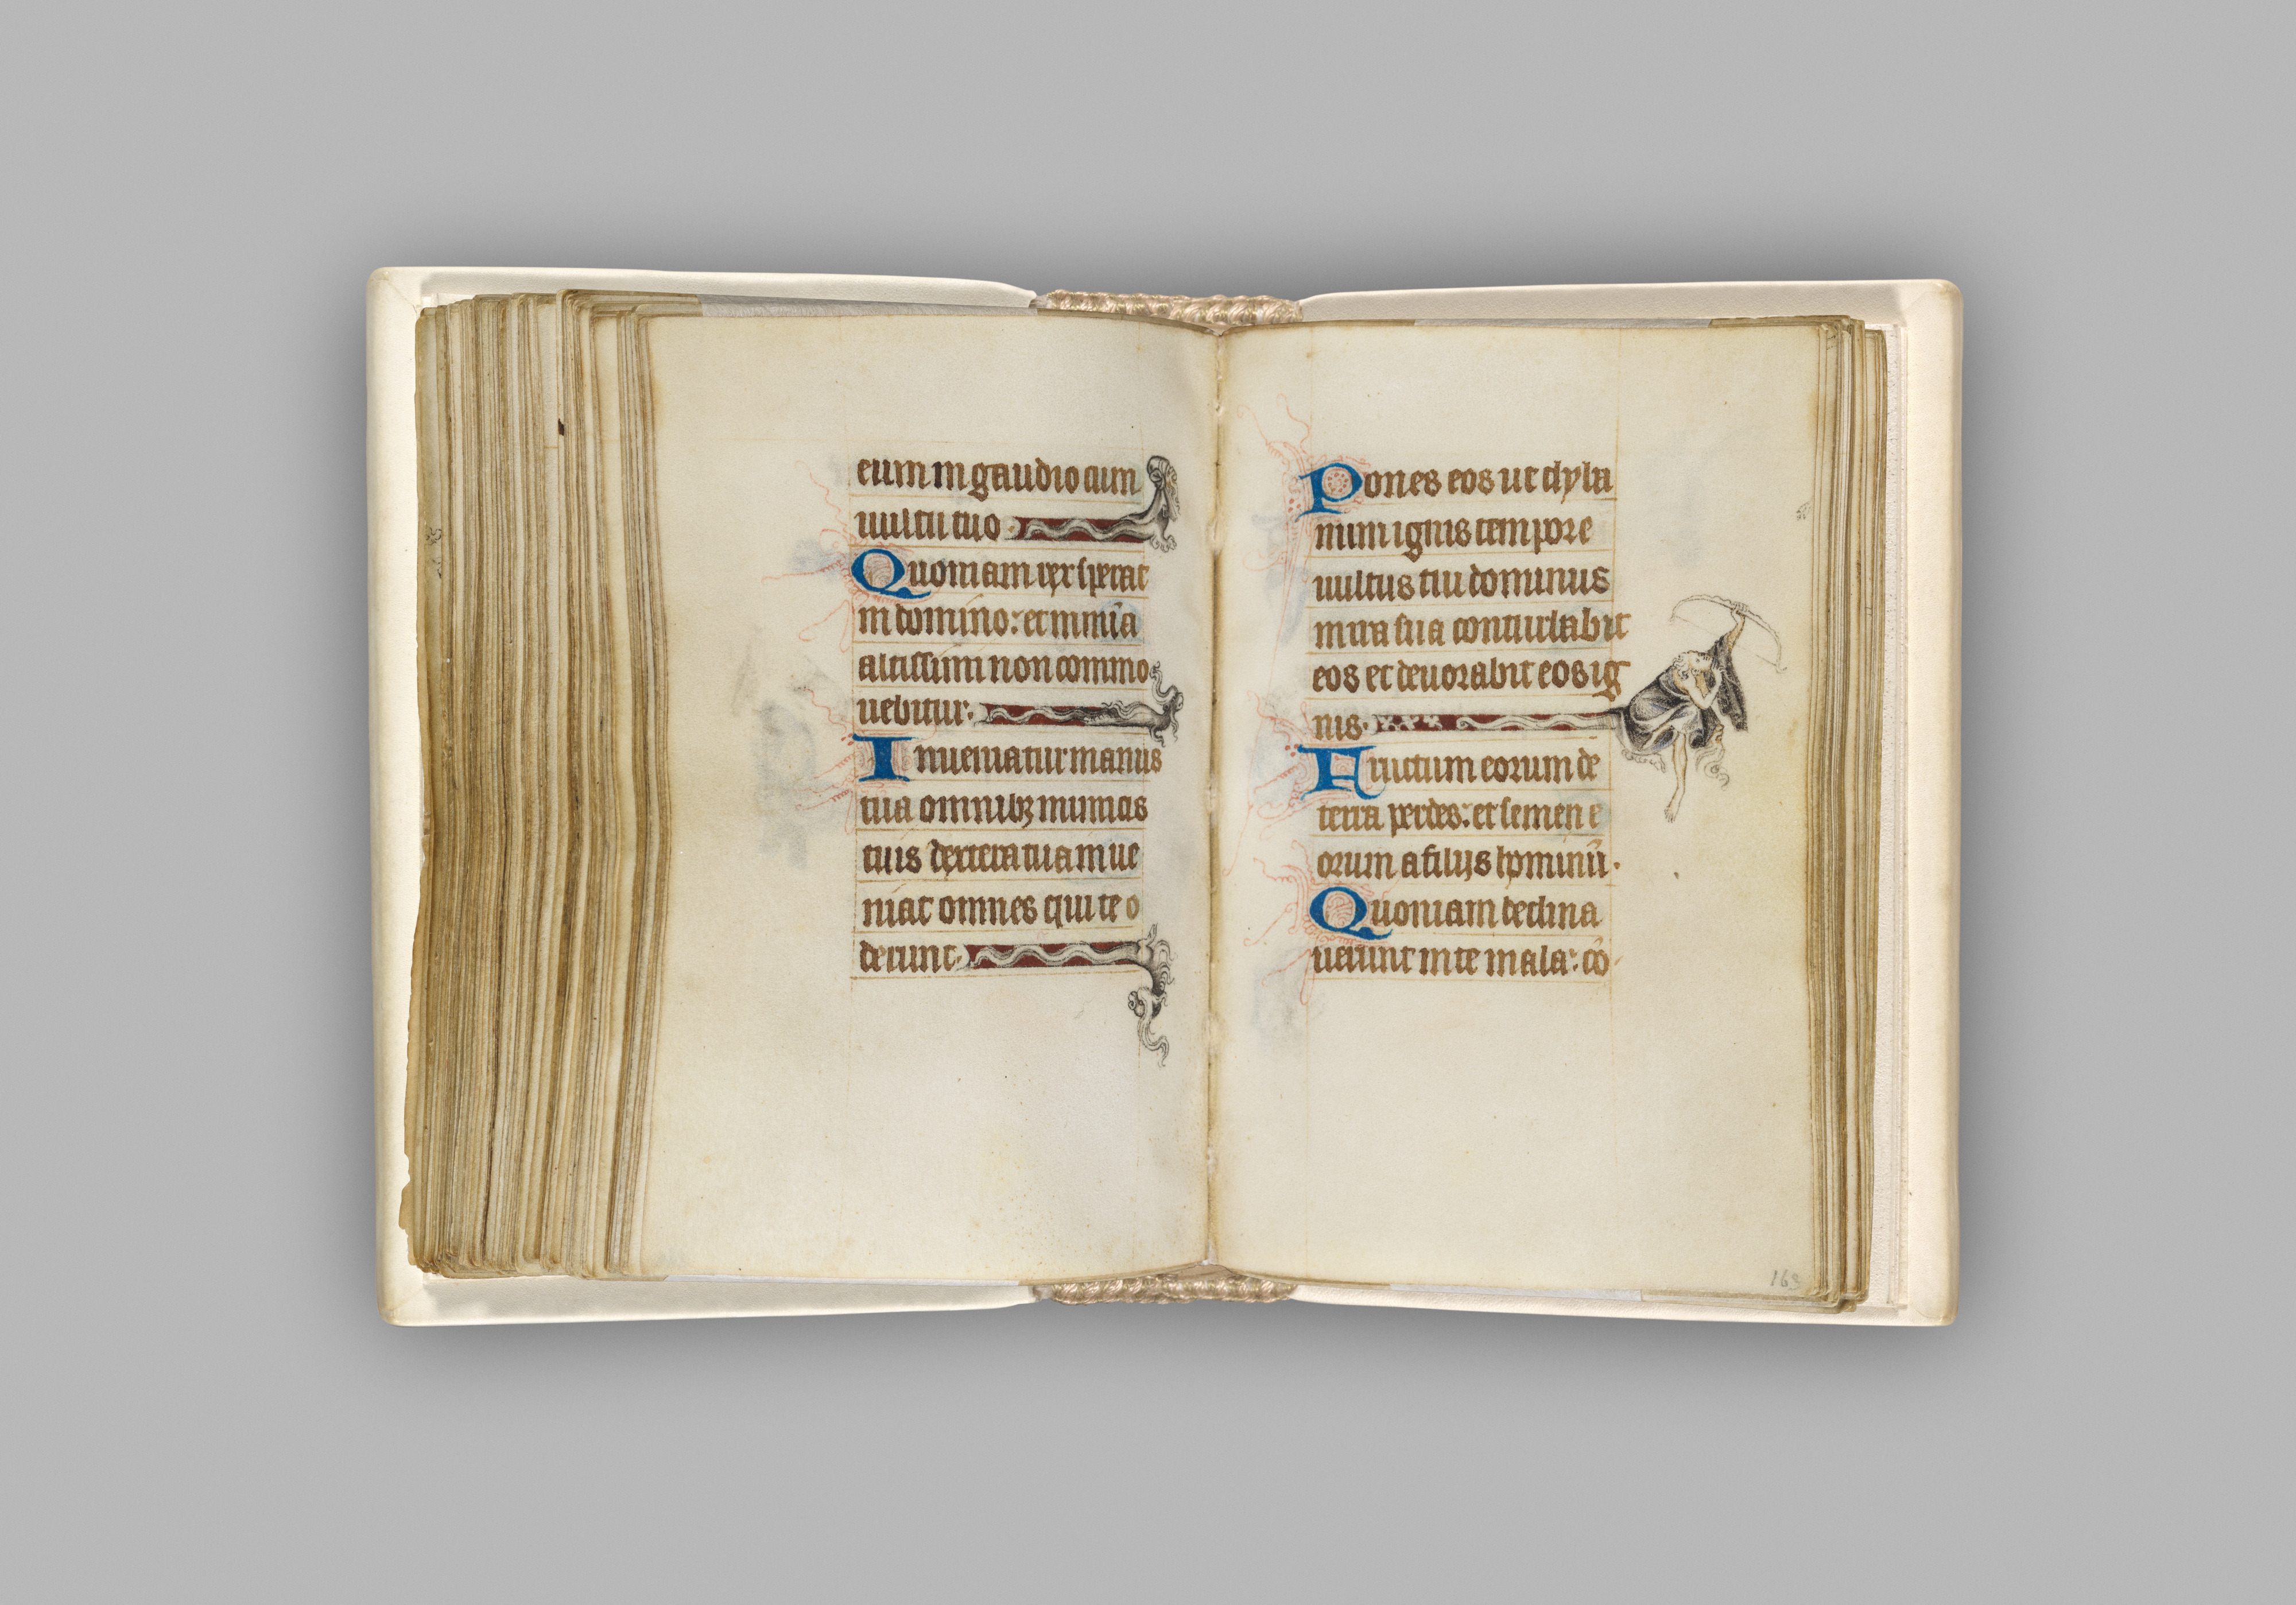 eum in gaudio cum
uultu tuo.
Quoniam rex sperat
in domino: et in mīa
altissimi non commo
uebitur.
Inueniatur manus
tua omnibꝫ inimicis
tuis dextera tua inue
niat omnes qui te o
derunt.
Pones eos ut clyba
num ignis tempore
uultus tui dominus
in ira sua conturbabit
eos et deuorabit eos ig
nis.
Fructum eorum de
terra perdes: et semen e
orum a filijs hominū.
Quoniam declina
uerunt in te mala: cō
163